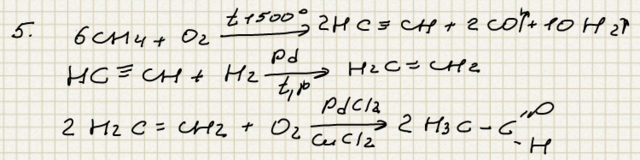 5. 6CH4 + O2 t 1500° → 2HC≡CH + 2CO↑ + 10H2↑
HC≡CH + H2 Pd t,p → H2C=CH2
2H2C=CH2 + O2 PdCl2 CuCl2 → 2H3C-C O -H